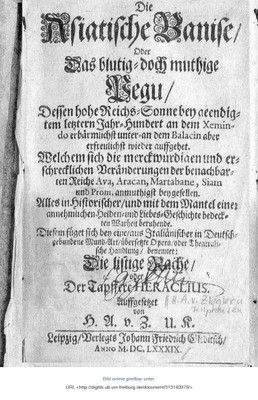 Die
Asiatische Banise/
Oder
Das blutig-doch muthige
Pegu/
Dessen hohe Reichs-Sonne bey geendig-
tem letztern Jahr-Hundert an dem Xemin-
do erbärmlichst unter-an dem Balacin aber
erfreulichst wieder auffgehet.
Welchem sich die merckwürdigen und er-
schrecklichen Veränderungen der benachbar-
ten Reiche Ava, Aracan, Martabane, Siam
und Prom, anmuthigst beygesellen.
Alles in Historischer/ und mit dem Mantel einer
annehmlichen Helden-und Liebes-Geschichte bedeck-
ten Warheit beruhende.
Diesem füget sich bey eine/ aus Italiänischer in Deutsch-
gebundene Mund-Art/ übersetzte Opera/ oder Theatrali-
sche Handlung/ benennet:
Die listige Rache/
oder
Der Tapffere HERACLIUS.
Auffgesetzet
von
H. A. v. Z. U. K.
Leipzig/ Verlegts Johann Friedrich Gleditsch/
ANNO M. DC. LXXXIX.
H. A. v. Ziegler u.
Bild online greifbar unter:
URL <http://digitdb.ub.uni-freiburg.de/document/313140979/>